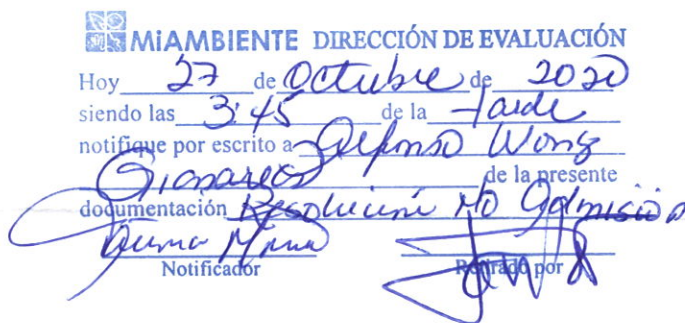 MiAMBIENTE DIRECCIÓN DE EVALUACIÓN
Hoy 27 de Octubre de 2020
siendo las 3:45 de la tarde
notifique por escrito a Alfonso Wong
de la presente
documentación Resolución No Admisión
Notificador Retirado por